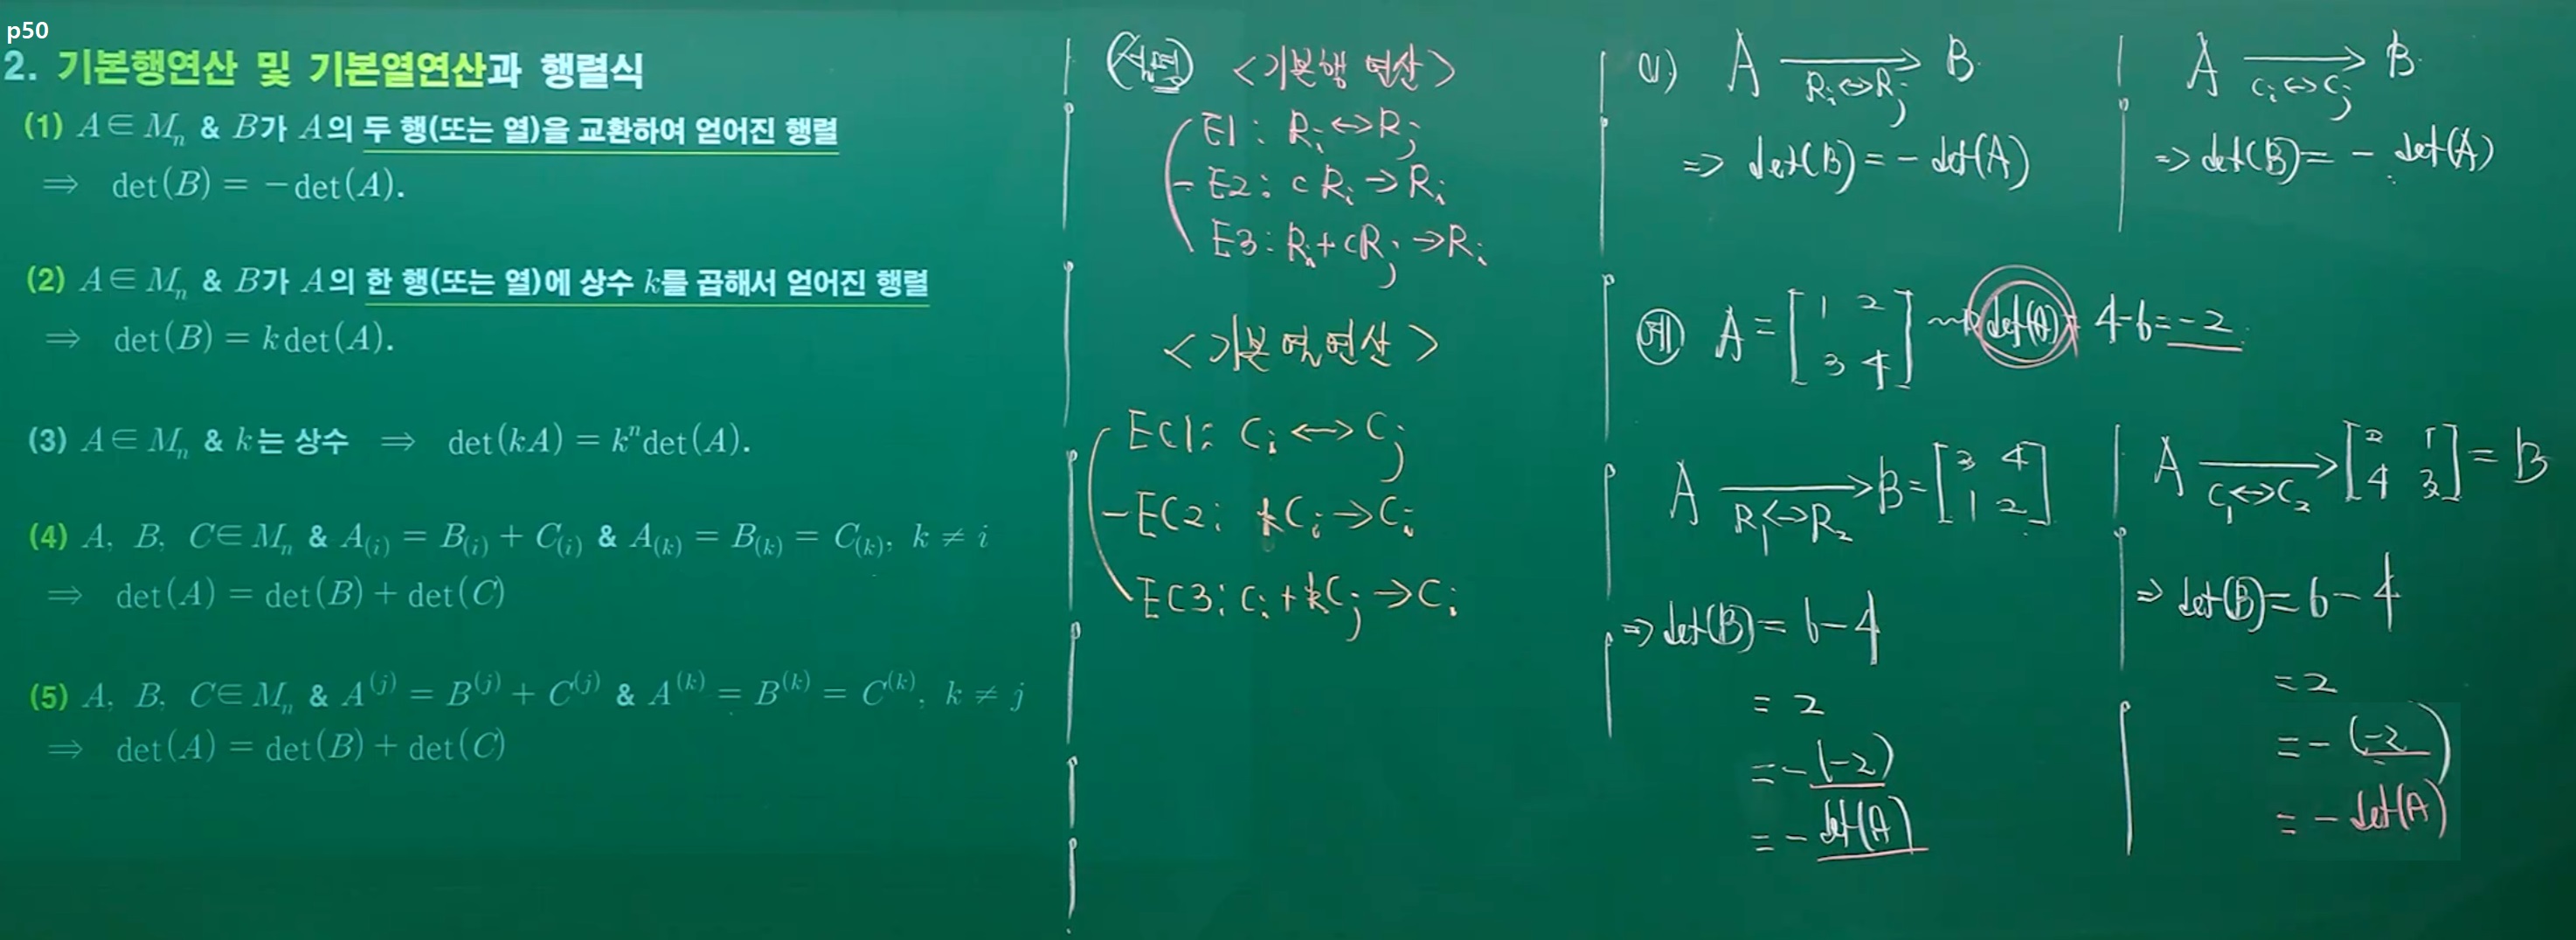 p50
2. 기본행연산 및 기본열연산과 행렬식
(1) A∈Mₙ & B가 A의 두 행(또는 열)을 교환하여 얻어진 행렬
⇒ det(B) = −det(A).
(2) A∈Mₙ & B가 A의 한 행(또는 열)에 상수 k를 곱해서 얻어진 행렬
⇒ det(B) = k det(A).
(3) A∈Mₙ & k는 상수 ⇒ det(kA) = kⁿdet(A).
(4) A, B, C∈Mₙ & A₍ᵢ₎ = B₍ᵢ₎ + C₍ᵢ₎ & A₍ₖ₎ = B₍ₖ₎ = C₍ₖ₎, k ≠ i
⇒ det(A) = det(B) + det(C)
(5) A, B, C∈Mₙ & A⁽ʲ⁾ = B⁽ʲ⁾ + C⁽ʲ⁾ & A⁽ᵏ⁾ = B⁽ᵏ⁾ = C⁽ᵏ⁾, k ≠ j
⇒ det(A) = det(B) + det(C)
(설명) <기본행 연산>
E1: Rᵢ ↔ Rⱼ
E2: cRᵢ → Rᵢ
E3: Rᵢ + cRⱼ → Rᵢ
<기본열연산>
EC1: Cᵢ ↔ Cⱼ
EC2: kCᵢ → Cᵢ
EC3: Cᵢ + kCⱼ → Cᵢ
(1) A → B
Rᵢ ↔ Rⱼ
⇒ det(B) = − det(A)
A → B
Cᵢ ↔ Cⱼ
⇒ det(B) = − det(A)
(예) A = [1 2
3 4] ⇝ det(A) = 4−6 = −2
A → B = [3 4
R₁ ↔ R₂ 1 2]
⇒ det(B) = 6−4
= 2
= −(−2)
= − det(A)
A → [2 1
C₁ ↔ C₂ 4 3] = B
⇒ det(B) = 6−4
= 2
= −(−2)
= − det(A)